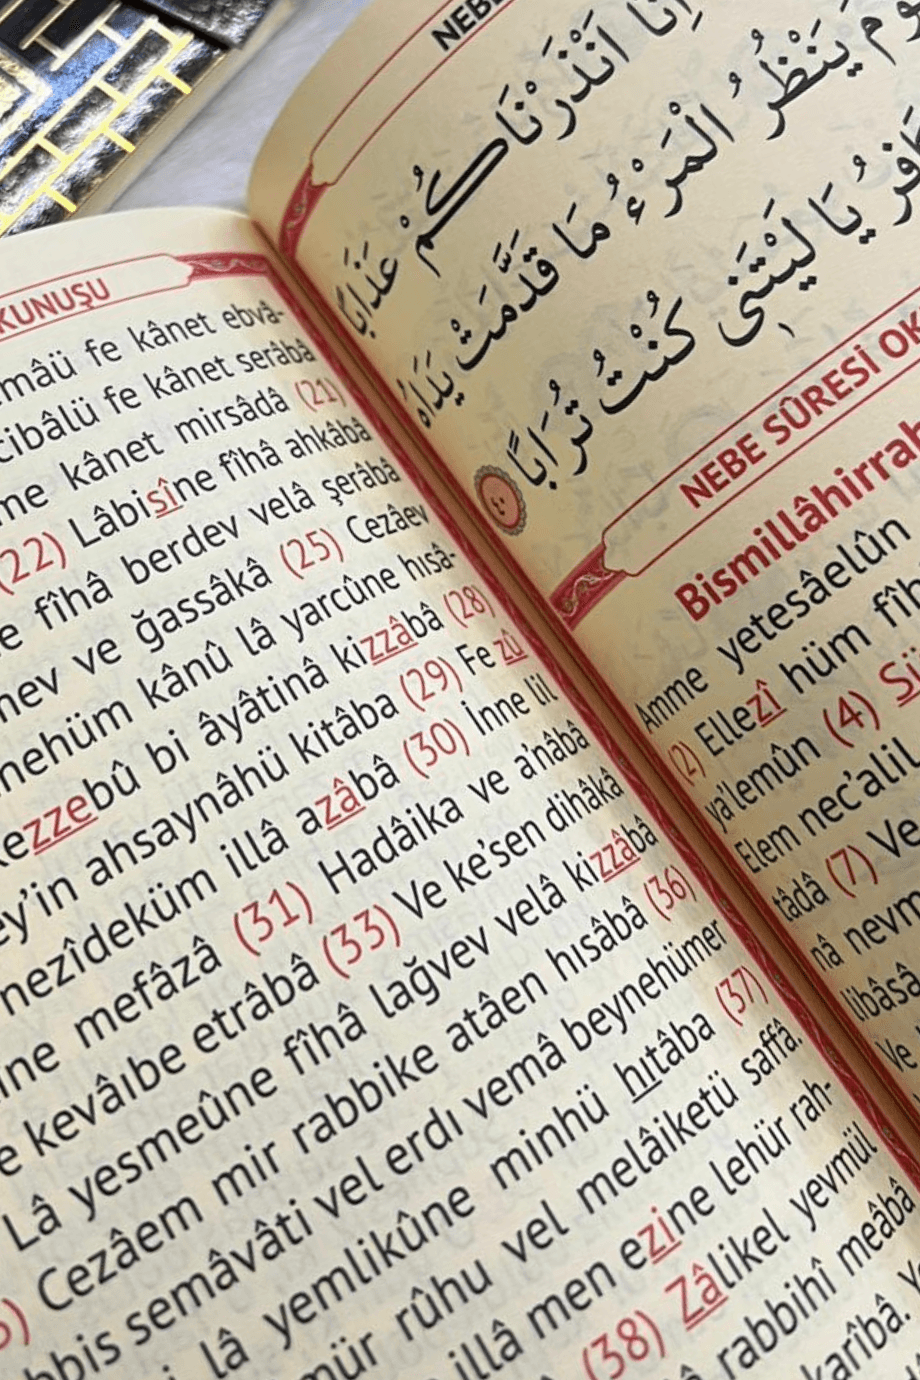 KUNUŞU
mâü fe kânet ebvâ-
cibâlü fe kânet serâbâ
me kânet mirsâdâ (21)
(22) Lâbisîne fîhâ ahkâbâ
fîhâ berdev velâ şerâbâ
ve ğassâkâ (25) Cezâev
nehüm kânû lâ yarcûne hısâ-
kezzebû bi âyâtinâ kizzâbâ (28)
ey'in ahsaynâhü kitâba (29) Fe zû
nezîdeküm illâ azâbâ (30) İnne lil
mefâzâ (31) Hadâika ve a'nâbâ
kevâıbe etrâbâ (33) Ve ke'sen dihâkâ
Lâ yesmeûne fîhâ lağvev velâ kizzâbâ
Cezâem mir rabbike atâen hısâbâ (36)
semâvâti vel erdı vemâ beynehümer
lâ yemlikûne minhü hıtâba (37)
rûhu vel melâiketü saffâ.
illâ men ezine lehür rah-
(38) Zâlikel yevmül
rabbihî meâbâ
karîbâ.
NEBE
اِنَّا اَنْذَرْنَاكُمْ عَذَابًا
يَنْظُرُ الْمَرْءُ مَا قَدَّمَتْ يَدَاهُ
يَا لَيْتَنٖى كُنْتُ تُرَابًا
٤٠
NEBE SÛRESİ
Bismillâhirrah
Amme yetesâelûn
(2) Ellezî hüm fîh
ya'lemûn (4)
Elem nec'alil
tâdâ (7) Ve
nâ nevm
libâsâ
Ve